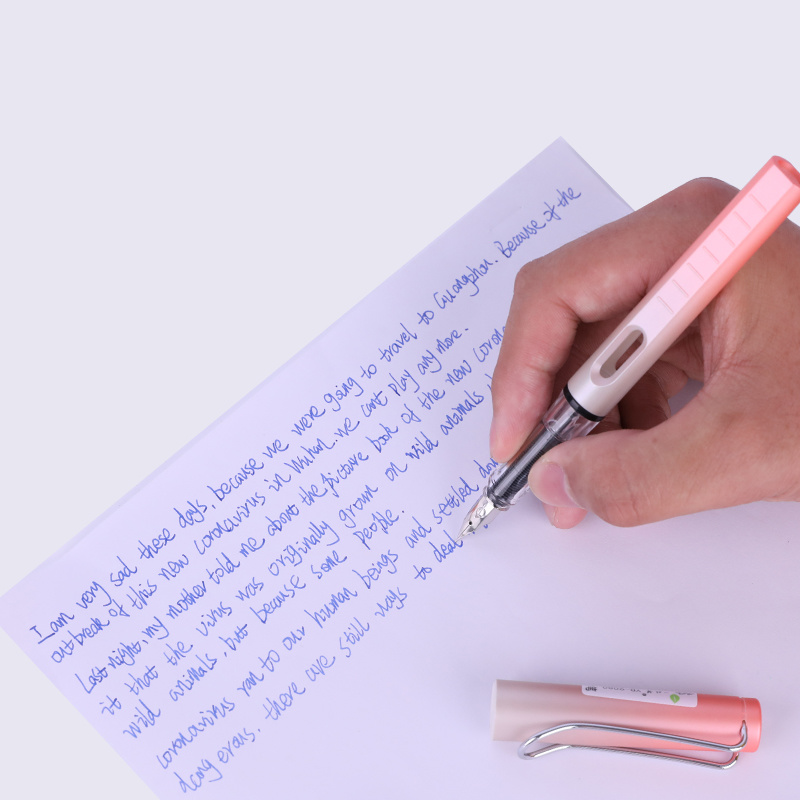 I am very sad these days, because we were going to travel to Guangzhou. Because of the
outbreak of this new coronavirus in Wuhan. we cant play any more.
Last night, my mother told me about the picture book of the new coron
it that the virus was originally grown on wild animals
wild animals, but because some people.
coronavirus ran to our human beings and settled dow
doing evans. there are still ways to deal